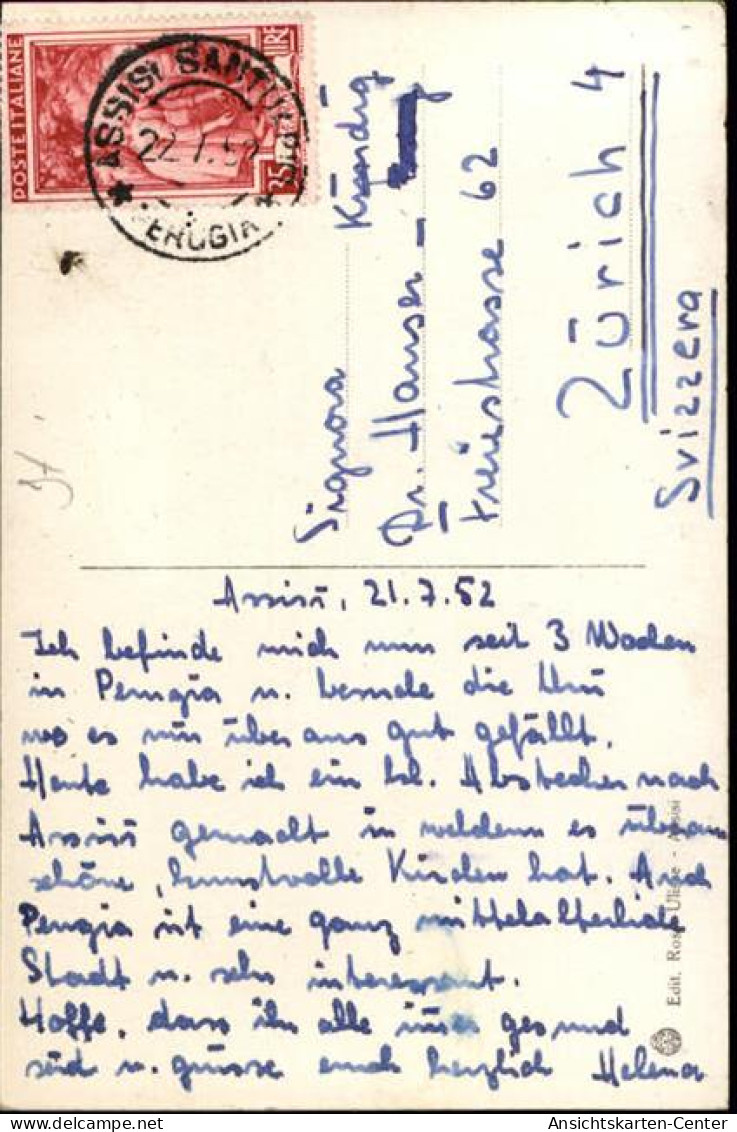 POSTE ITALIANE
LIRE
35
ASSISI SANTUARIO
22.7.52
PERUGIA
Signora Kündig
Dr. Hauser -
Freiestrasse 62
Zürich 4
Svizzera
Assisi, 21.7.52
Ich befinde mich nun seit 3 Wochen
in Perugia u. besuche die Uni
wo es mir überaus gut gefällt.
Heute habe ich ein kl. Abstecher nach
Assisi gemacht in welchem es überaus
schöne, kunstvolle Kirchen hat. Auch
Perugia ist eine ganz mittelalterliche
Stadt u. sehr interessant.
Hoffe, dass ihr alle immer gesund
seid u. grüsse euch herzlich Helena
Edit. Rosa Ulisse - Assisi
Ansichtskarten-Center